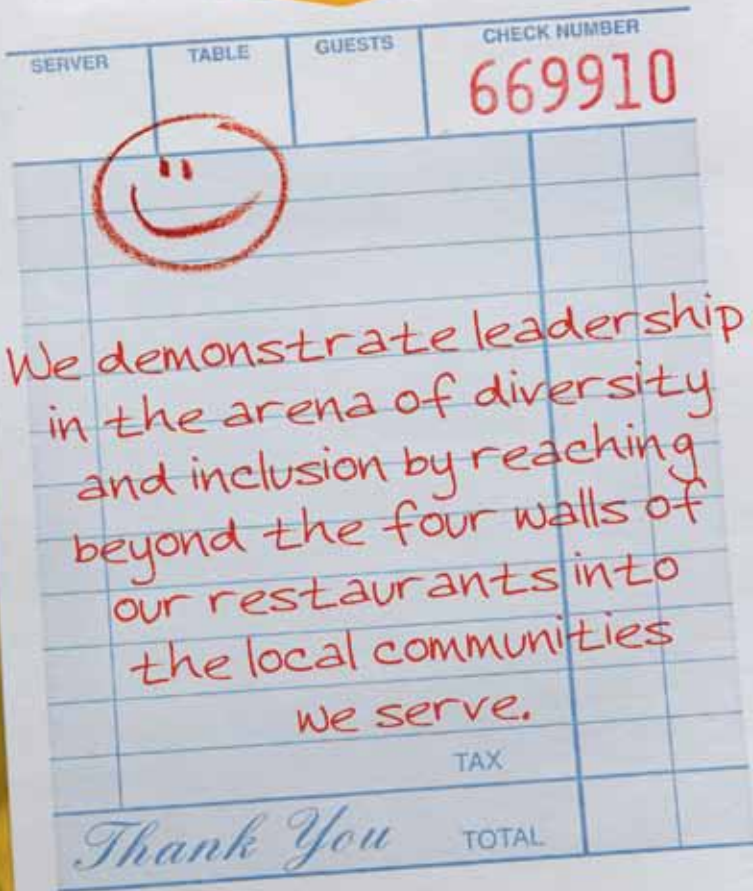 SERVER TABLE GUESTS CHECK NUMBER
669910
We demonstrate leadership
in the arena of diversity
and inclusion by reaching
beyond the four walls of
our restaurants into
the local communities
we serve.
TAX
Thank You TOTAL